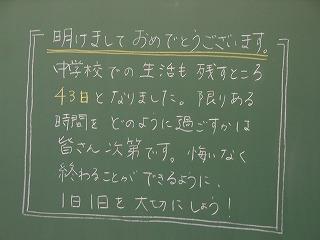 明けまして おめでとうございます。
中学校での 生活も 残すところ
43日 となりました。限り ある
時間を どのように 過ごすかは
皆さん 次第です。悔いなく
終わることが できるように、
1日1日を 大切に しよう！